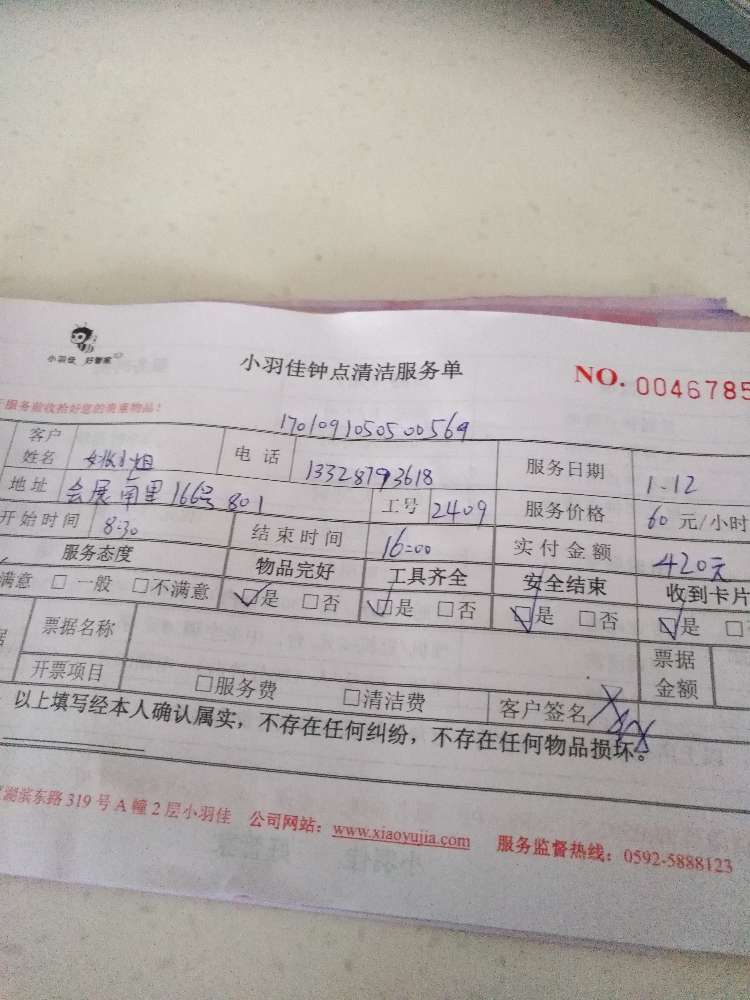 小羽佳 好管家
小羽佳钟点清洁服务单
NO. 0046785
服务前收拾好您的贵重物品!
1701091050500569
客户姓名 姚小姐 电话 13328793618 服务日期 1.12
地址 会展南里166号801 工号 2409 服务价格 60 元/小时
开始时间 8:30 结束时间 16:00 实付金额 420元
服务态度 物品完好 工具齐全 安全结束 收到卡片
满意 □ 一般 □不满意 ☑是 □否 ☑是 □否 ☑是 □否 ☑是 □
票据名称 票据金额
开票项目 □服务费 □清洁费 客户签名
以上填写经本人确认属实，不存在任何纠纷，不存在任何物品损坏。
湖滨东路 319 号 A 幢 2 层小羽佳 公司网站：www.xiaoyujia.com 服务监督热线：0592-5888123